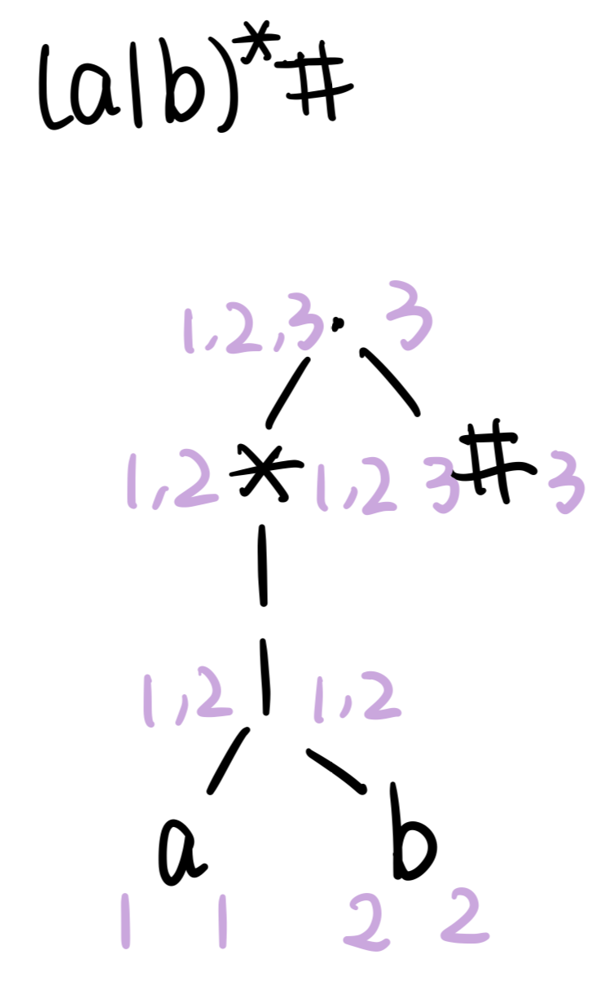 (a|b)*#
1,2,3 · 3
1,2 * 1,2 3 # 3
1,2 | 1,2
a b
1 1 2 2